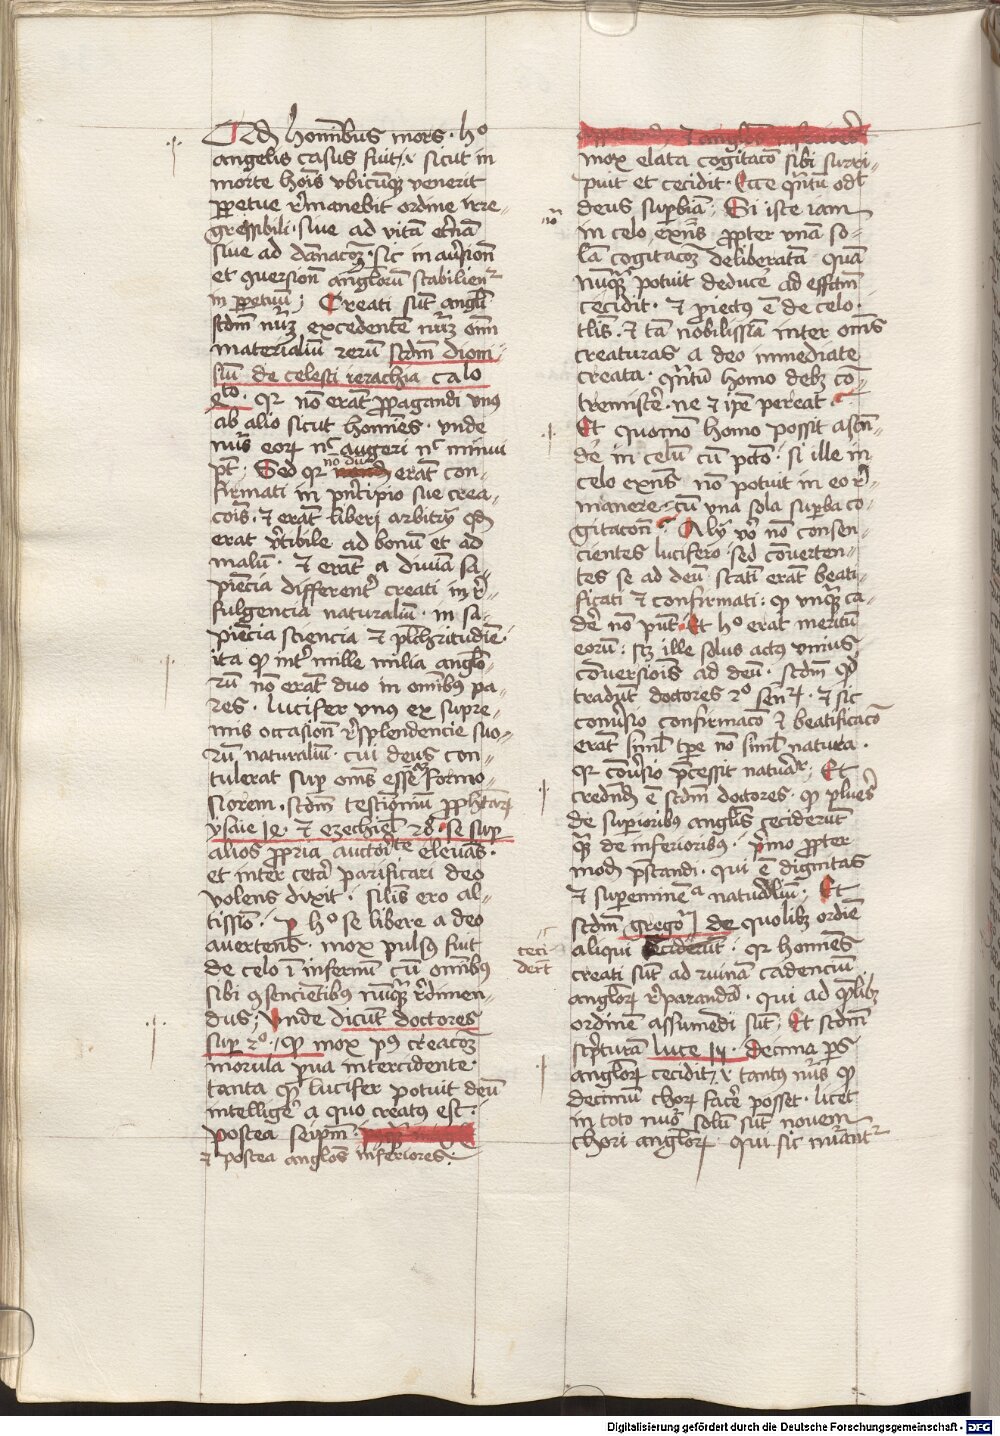 Qd hominibus mors · ho
angelis casus fuit · sicut in
morte hois vbicumq venerit
ppetue rmanebit ordine irre-
gressibili · siue ad vitā etnā
siue ad dānacoꝫ · sic in auʼsion
et ꝯuersion angloruʒ stabilienʳ
in ppetuū ; Creati sūt angli
scdm nūʒ excedente nūʒ oīm
materialiū reruʒ scdm dioni
siū de celesti ierachia calo
qto · qr nō erāt ppagandi vnꝯ
ab alio sicut homines · vnde
nūs eoꝝ nc augeri nc minui
pt · Sed qr nōdū erāt con-
firmati in pncipio sue crea-
cois · et erāt liberi arbitrij qd
erat vtibile ad bonū et ad
malū · et erāt a diuīa sa-
piēcia differentʳ creati in rʼ-
fulgencia naturaliū · in sa-
piēcia sciencia et plchritudie ·
ita qp int mille milia anglo-
rū nō erāt duo in omībꝯ pa-
res · lucifer vnꝯ ex supre-
mis occasion rsplendencie suo-
rū naturaliū · cui deus con-
tulerat sup oms esse formo-
siorem · scdm testigmiū pphetaꝝ
ysaie 14 · et ezechiel 28 · se sup
alios ppria auctoitte eleuās ·
et inter cetā parificari deo
volens dixit · silis ero al-
tissio · p ho se libere a deo
auertens · mox pulsꝯ fuit
de celo ī infernū cū omībꝯ
sibi ꝯsencietibus nūq rdimen-
dus ; vnde dicūt doctores
sup 2o · qp mox pꝯ creacoꝫ
morula pua intercidente
tanta qp lucifer potuit deū
intellige a quo creatꝯ est ·
postea seipm ·
et postea anglos inferiores ·
mox elata cogitaco sibi surri-
puit et cecidit · Ecce qntū odt
deus supbiā · Si iste iam
in celo exns ppter vnā so-
lā cogitacoꝫ deliberatā quā
nūq potuit deduce ad effctm
cecidit · et piectꝯ ē de celo ·
tlis · et tā nobilissīa inter oms
creaturas a deo inmediate
creata · qntū homo debꝫ cō-
tremiscʼe · ne et ipe pereat ·
Et quomō homo possit ascn-
dʼe in celū cū pcto · si ille in
celo exns nō potuit in eo rʼ-
manere · cū vna sola supba co-
gitacon · Alij vo nō consen-
cientes lucifero sed cōuerten-
tes se ad deū statī erāt beati-
ficati et confirmati : qp vnq ca-
dʼe nō pnt · Et ho erat meritū
eorū : scʒ ille solus actꝯ vniꝯ
cōuersiois ad deū · scdm qd
tradūt doctores 2o senꝝ · et sic
conuʼsio confirmaco et beatificaco
erāt siml tpe nō siml natura ·
qr cōuʼsio pcessit naturaꝝ · Et
crednd ē scdm doctores · qp plures
de supioribus anglis ceciderūt
q de inferioribus · pmo ppter
modū pstandi · qui ē dignitas
et superminēa naturaliū · Et
scdm gregoʳ de quolibꝫ ordie
aliqui ceciderūt · qr homīes
creati sūt ad ruinā cadenciū
angloꝝ rparandā · qui ad qlibꝫ
ordinē assumēdi sūt · Et scdm
scpturā luce 15 · decima ps
angloꝝ cecidit · et tantꝯ nūs qp
decimū choꝝ facʼe posset · licet
in toto nūo solū sūt nouem
chori angloꝝ · qui sic nūantʳ
ceci
dert